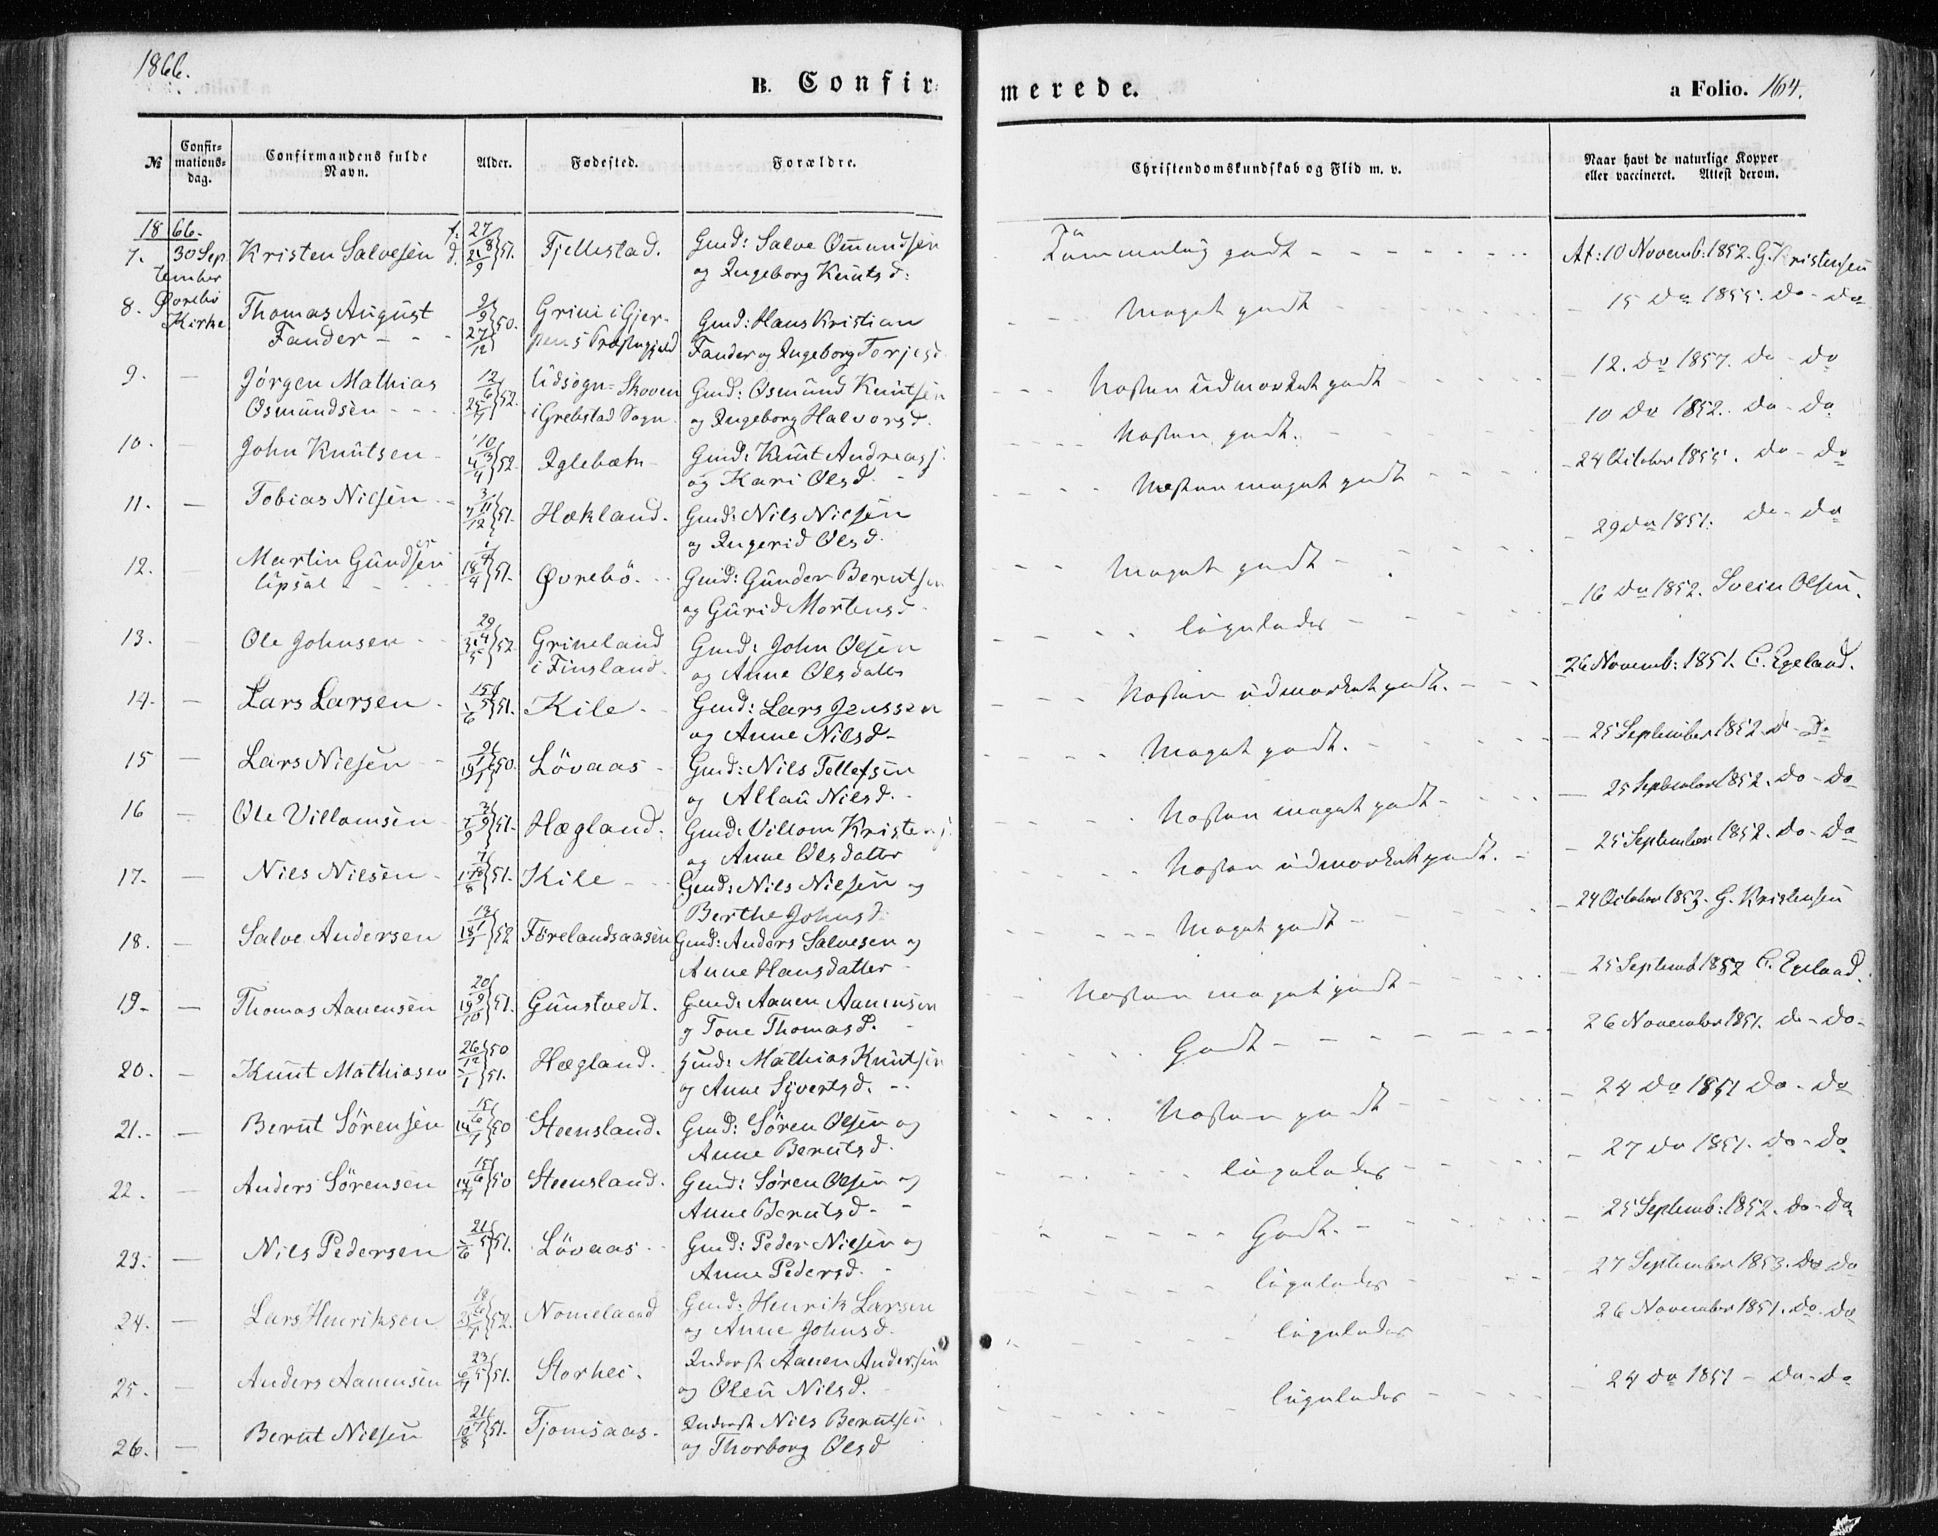 1866.
B. Confirmerede.
a Folio. 164.
№ Confirmations-dag. Confirmandens fulde Navn. Alder. Fødested. Forældre. Christendomskundskab og Flid m. v. Naar havt de naturlige Kopper eller vaccineret. Attest derom.
1866.
7. 30 Sep Kristen Salvesen f. 27/8 d. 21/9 51. Fjellestad. Gmd: Salve Omundsen Tåmmelig godt At: 10 Novemb: 1852. G. Kristensen
tember og Ingeborg Knutsd:
Øvrebø
8. Kirke Thomas August 2/9 50. Grini i Gjer- Gmd: Hans Kristian Meget godt 15 Do 1855. Do - Do
Fander 27/12 pens Præstegjeld Fander og Ingeborg Torjesd.
9. — Jørgen Mathias 12/6 52. Udsogn: Skoven Gmd: Osmund Knutsen Næsten udmærket godt 12. Do 1857. Do - Do
Osmundsen 25/7 i Grebstad Sogn og Ingeborg Halvorsd.
10. — John Knutsen 10/3 4/4 52. Iglebæk Gmd: Knut Andreass. Næsten godt. 10 Do 1852. Do - Do
og Kari Olsd.
11. — Tobias Nilsen 3/11 7/12 51. Hækland. Gmd: Nils Nielsen Næsten meget godt 24 October 1855. Do - Do
og Ingerid Olsd.
12. — Martin Gundsen 1/4 18/4 51. Øvrebö. Gmd: Gunder Berntsen Meget godt 29 Do 1851. Do - Do
Upsal og Gurid Mortensd.
13. — Ole Johnsen 29/4 31/5 52. Grineland Gmd: John Olsen ligeledes 16 Do 1852. Svein Olsen.
i Finsland. og Anne Olsdatter
14. — Lars Larsen 15/5 /6 51. Kile Gmd: Lars Jenssen Næsten udmærket godt. 26 Novemb: 1851. C. Egeland.
og Anne Nilsd.
15 — Lars Nielsen 50. Lövaas Gmd: Nils Tellefsen Meget godt. 25 September 1852. Do - Do
og Allau Nilsd.
16 — Ole Villamsen 51. Hægland. Gmd: Villom Kristens. Næsten meget godt 25 September 1852. Do - Do
og Anne Olsdatter
17. — Nils Nilsen 51. Kile Gmd: Nils Nielsen og Næsten udmærket godt. 25 September 1852. Do - Do
Berthe Johnsd.
18. — Salve Andersen 52 Förelandsaasen Gmd: Anders Salvesen og Meget godt 24 October 1853. G. Kristensen
Anne Hansdatter
19 — Thomas Aanensen 20/9 19/10 51. Gunstvedt. Gmd: Aanen Aanensen Næsten meget godt 25 Septemb 1852 C. Egeland.
og Tone Thomasd.
20. — Knut Mathiasen 26/12 50 /1 51. Hægland. Gmd: Mathias Knutsen Godt 26 November 1851. do - do
og Anne Syvertsd.
21. — Bernt Sörensen 15/6 14/7 50 Steensland. Gmd: Sören Olsen og Næsten godt 24 Do 1851 Do - Do
Anne Berntsd.
22. — Anders Sörensen 15/6 14/7 50 Steensland. Gmd: Sören Olsen og ligeledes 27 Do 1851. Do - Do
Anne Berntsd.
23. — Nils Pedersen 21/5 /6 51. Lövaas Gmd: Peder Nielsen og Godt. 25 Septemb: 1852. Do - Do
Anne Pedersd.
24. — Lars Henriksen 52. Nomeland Gmd: Henrik Larsen ligeledes 27 September 1853. Do Do
og Anne Johnsd.
25. — Anders Aanensen 23/5 6/7 51. Storhei. Inderst Aanen Andersen ligeledes 26 November 1851. Do - Do
og Olen Nilsd.
26. — Bernt Nilsen 21/7 10/8 51. Fjomsaas. Inderst Nils Berntsen ligeledes 24 Do 1851 - Do - Do
og Thorborg Olsd